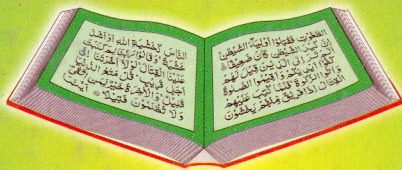 الطَّاغُوتِ فَقَاتِلُوا أَوْلِيَاءَ الشَّيْطٰنِ
إِنَّ كَيْدَ الشَّيْطٰنِ كَانَ ضَعِيفًا
أَلَمْ تَرَ إِلَى الَّذِينَ قِيلَ لَهُمْ
كُفُّوا أَيْدِيَكُمْ وَأَقِيمُوا الصَّلٰوةَ
وَآتُوا الزَّكٰوةَ فَلَمَّا كُتِبَ عَلَيْهِمُ
الْقِتَالُ إِذَا فَرِيقٌ مِنْهُمْ يَخْشَوْنَ
النَّاسَ كَخَشْيَةِ اللهِ أَوْ أَشَدَّ
خَشْيَةً وَقَالُوا رَبَّنَا لِمَ كَتَبْتَ
عَلَيْنَا الْقِتَالَ لَوْلَا أَخَّرْتَنَا إِلَى
أَجَلٍ قَرِيبٍ قُلْ مَتَاعُ الدُّنْيَا
قَلِيلٌ وَالْآخِرَةُ خَيْرٌ لِمَنِ اتَّقَى
وَلَا تُظْلَمُونَ فَتِيلًا